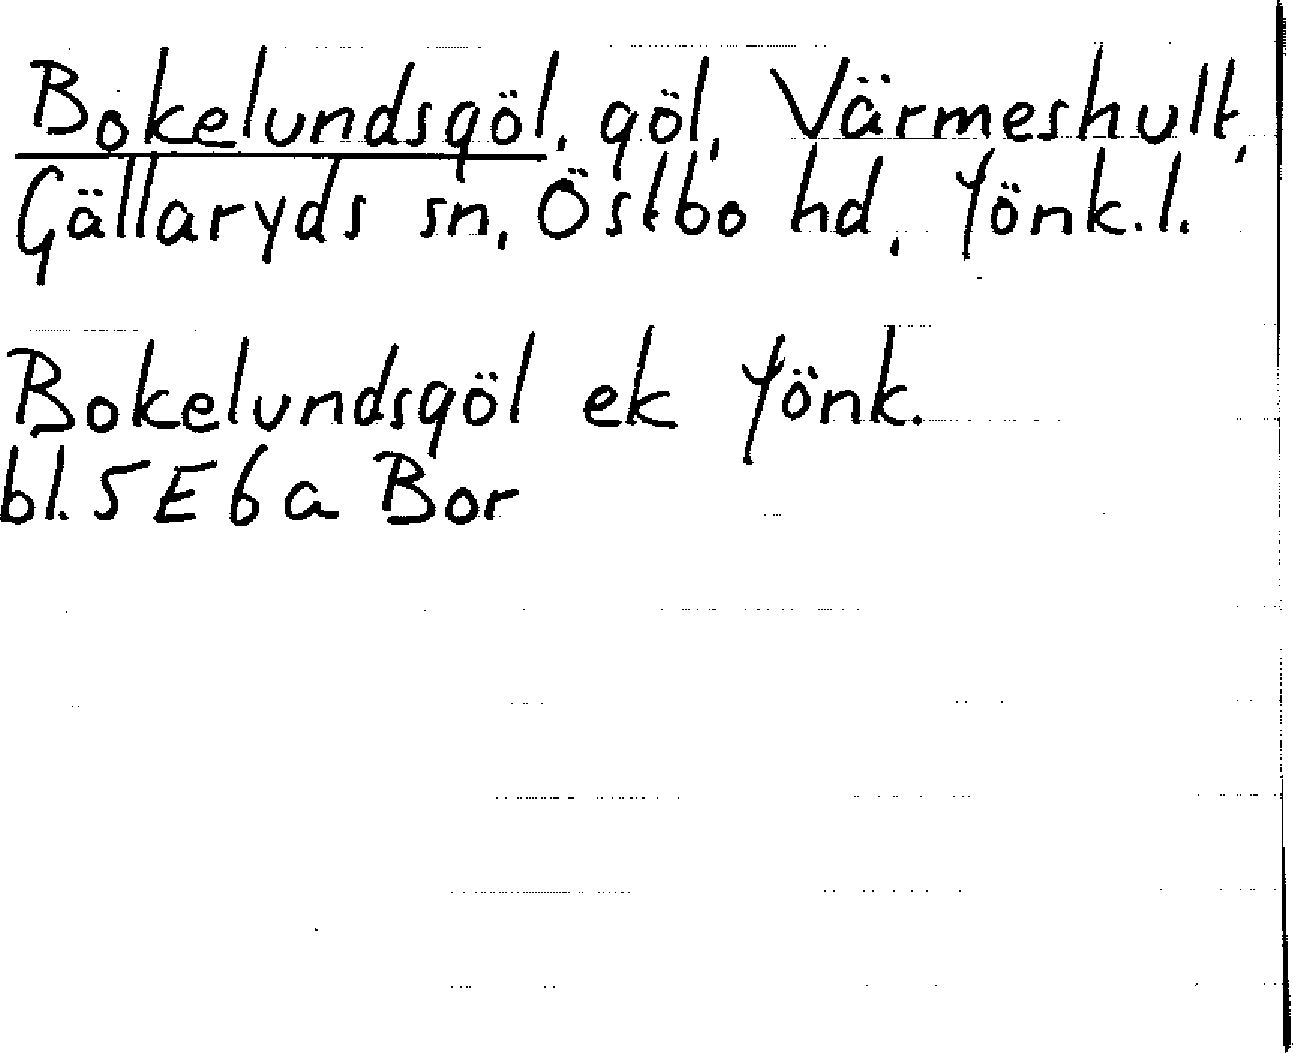 Bokelundsgöl, göl, Värmeshult,
Gällaryds sn, Östbo hd, Jönk.l.
Bokelundsgöl ek Jönk.
bl. 5E6a Bor